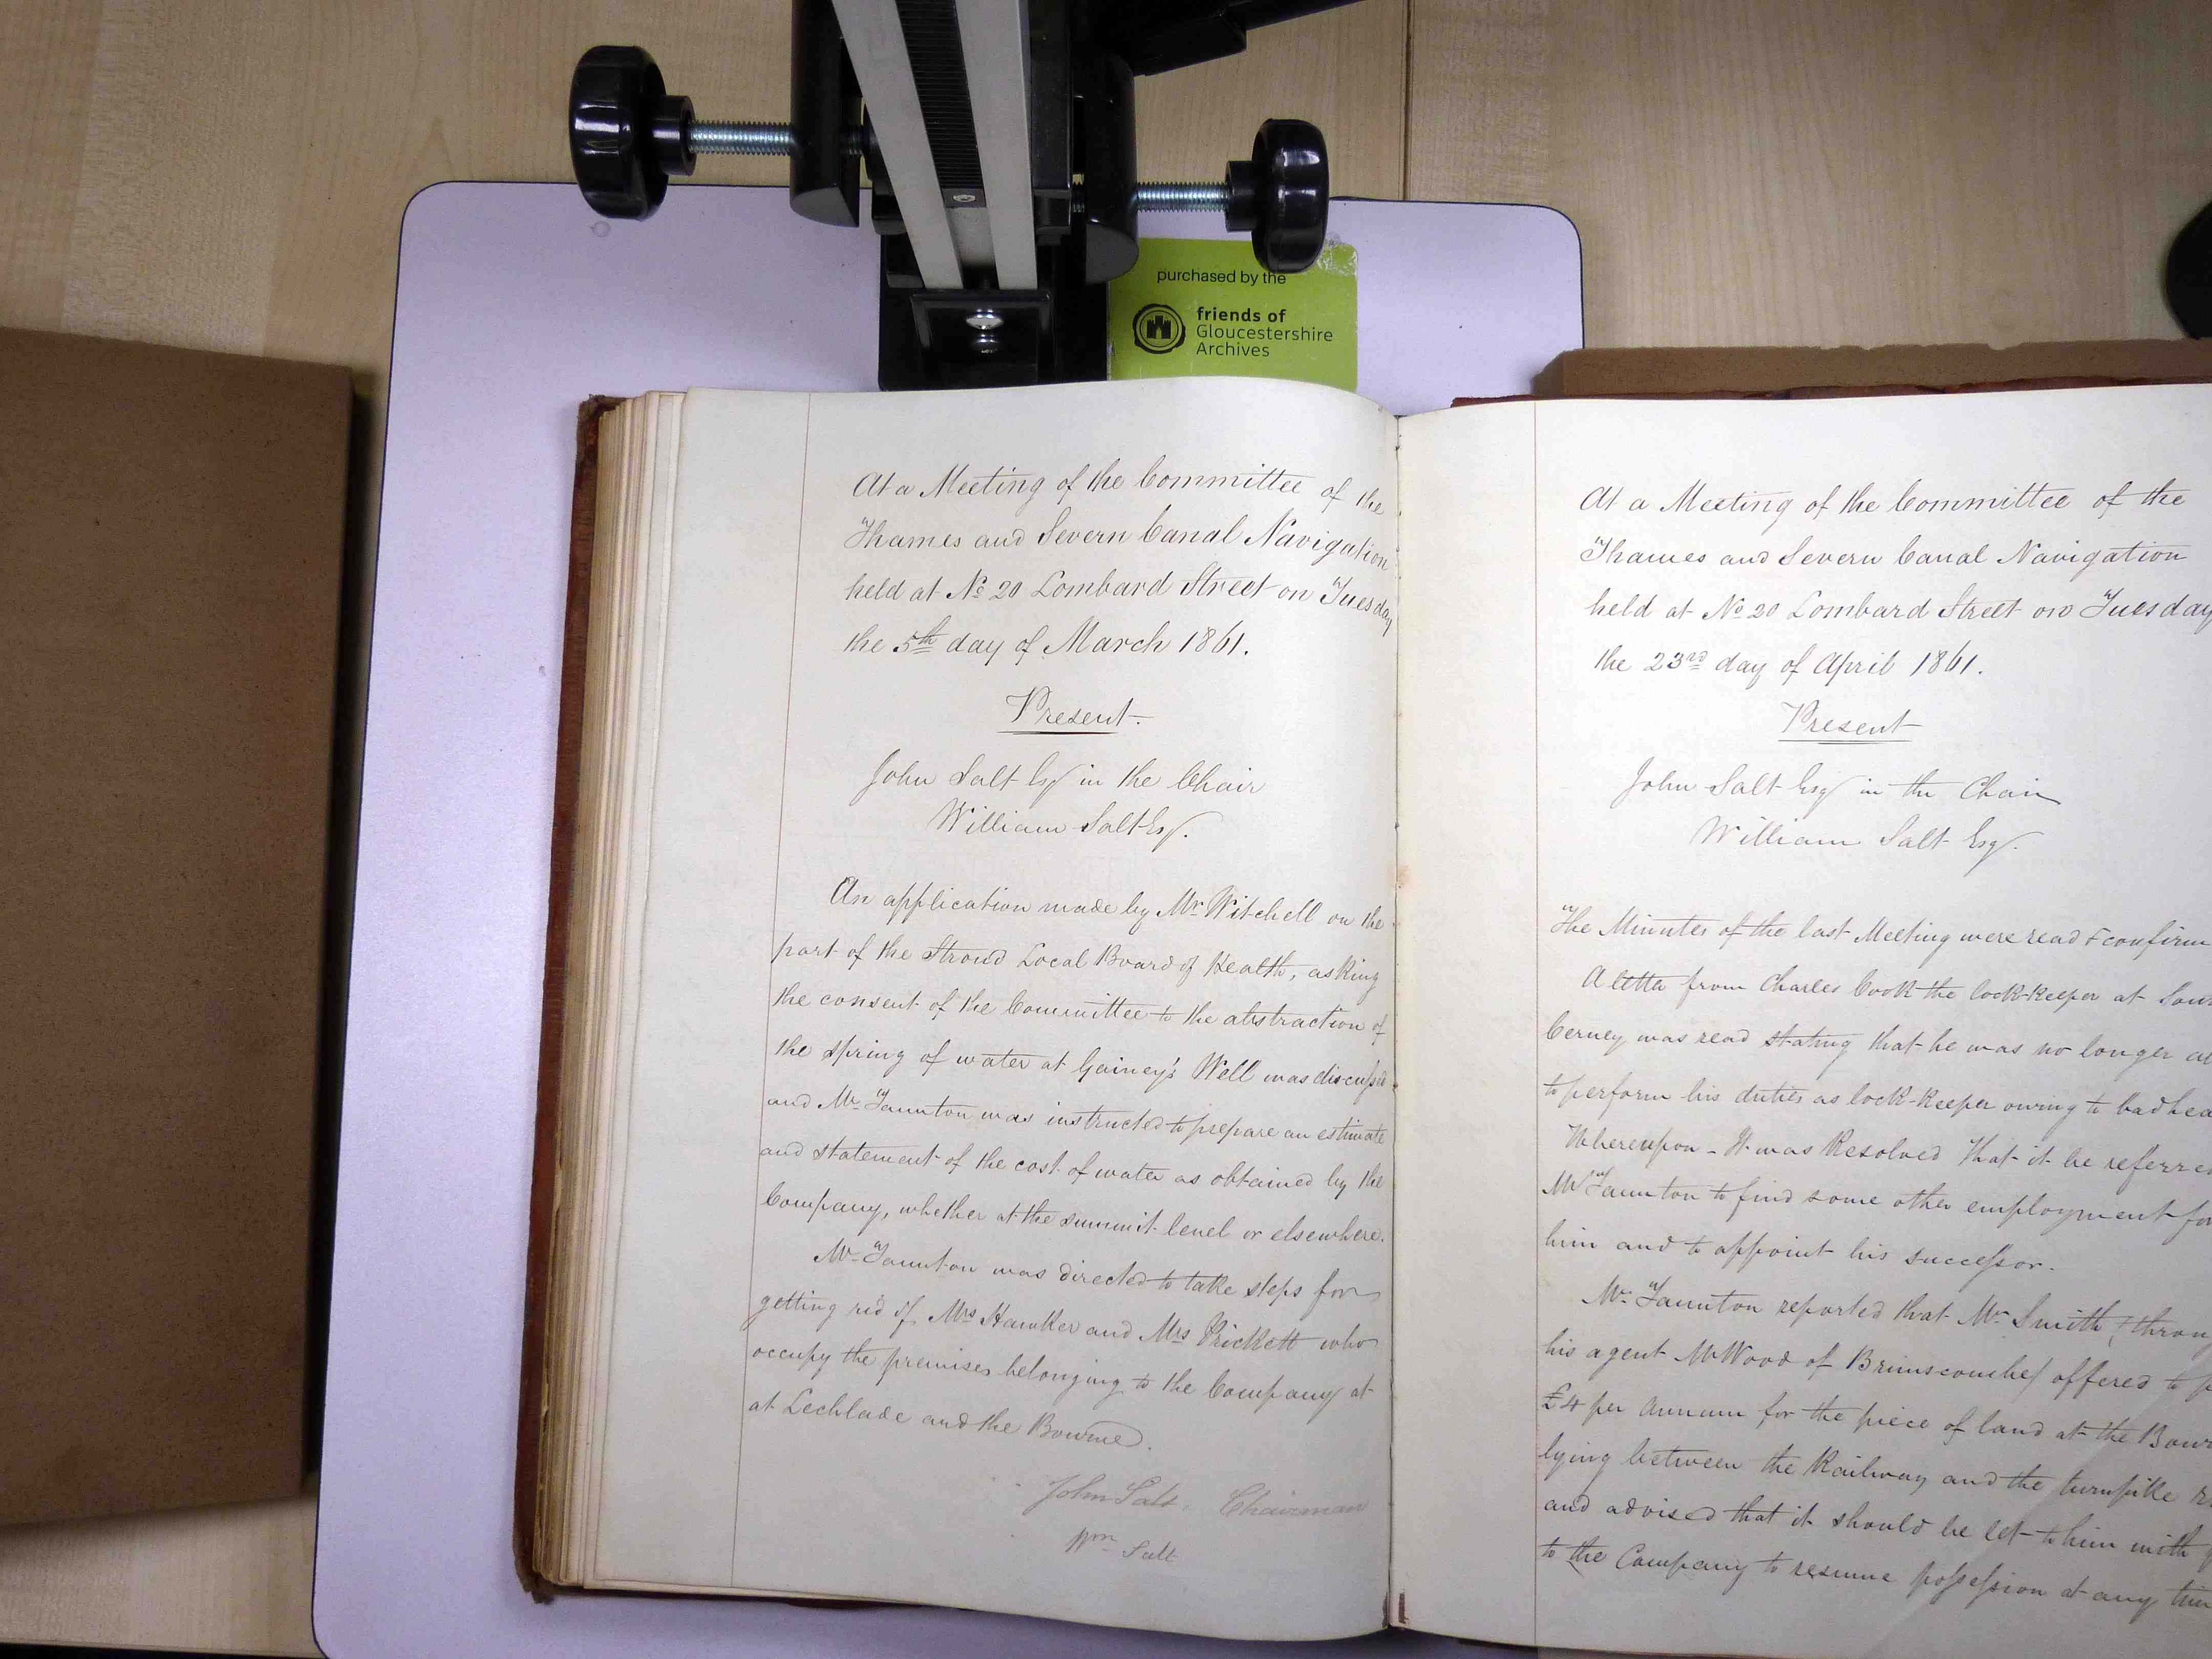 purchased by the
friends of
Gloucestershire
Archives
At a Meeting of the Committee of the
Thames and Severn Canal Navigation
held at No 20 Lombard Street on Tuesday
the 5th day of March 1861.
Present.
John Salt Esq in the Chair
William Salt Esq.
An application made by Mr Witchell on the
part of the Stroud Local Board of Health, asking
the consent of the Committee to the abstraction of
the spring of water at Gainey's Well was discussed
and Mr Taunton was instructed to prepare an estimate
and statement of the cost of water as obtained by the
Company, whether at the summit level or elsewhere.
Mr Taunton was directed to take steps for
getting rid of Mrs Hawker and Mrs Prickett who
occupy the premises belonging to the Company at
at Lechlade and the Bourne.
John Salt, Chairman
Wm Salt
At a Meeting of the Committee of the
Thames and Severn Canal Navigation
held at No 20 Lombard Street on Tuesday
the 23rd day of April 1861.
Present
John Salt Esq in the Chair
William Salt Esq.
The Minutes of the last Meeting were read & confirm
A letter from Charles Cook the lock-keeper at Sou
Cerney was read stating that he was no longer a
to perform his duties as lock-keeper owing to bad hea
Whereupon - It was Resolved That it be referre
Mr Taunton to find some other employment for
him and to appoint his successor.
Mr Taunton reported that Mr Smith (throu
his agent Mr Wood of Brimscombe) offered to p
£4 per annum for the piece of land at the Bour
lying between the Railway and the turnpike r
and advised that it should be let to him with p
to the Company to resume possession at any tim